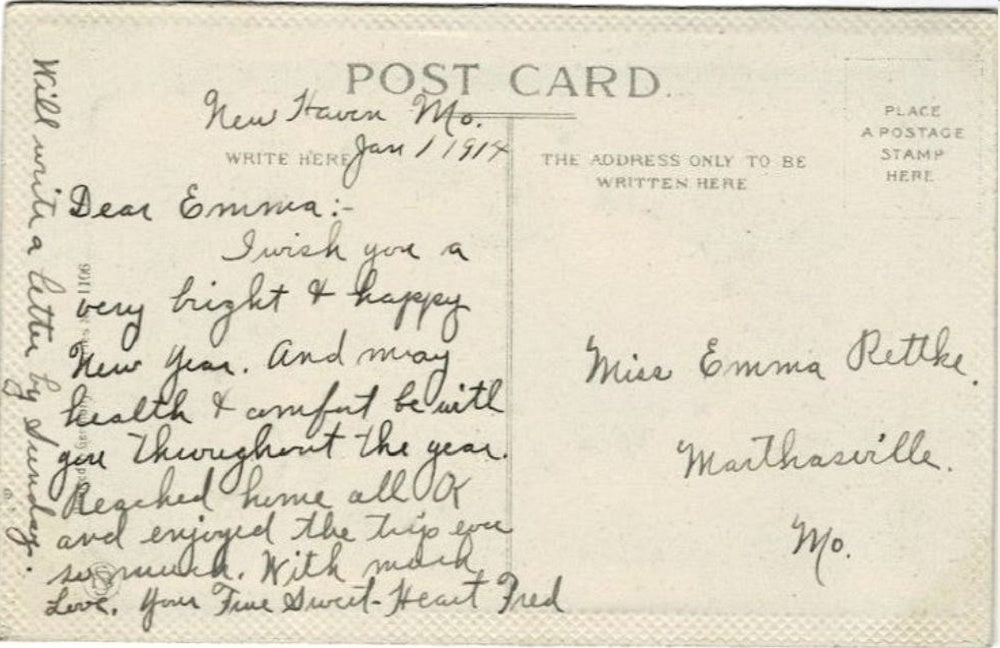 POST CARD
New Haven Mo.
WRITE HERE Jan 1 1914
THE ADDRESS ONLY TO BE
WRITTEN HERE
PLACE
A POSTAGE
STAMP
HERE
Dear Emma:-
I wish you a
very bright & happy
New Year. And may
health & comfort be with
you throughout the year.
Reached home all OK
and enjoyed the trip ever
so much. With much
Love. Your True Sweet-Heart Fred
Will write a letter by Sunday.
Miss Emma Rettke.
Marthasville.
Mo.